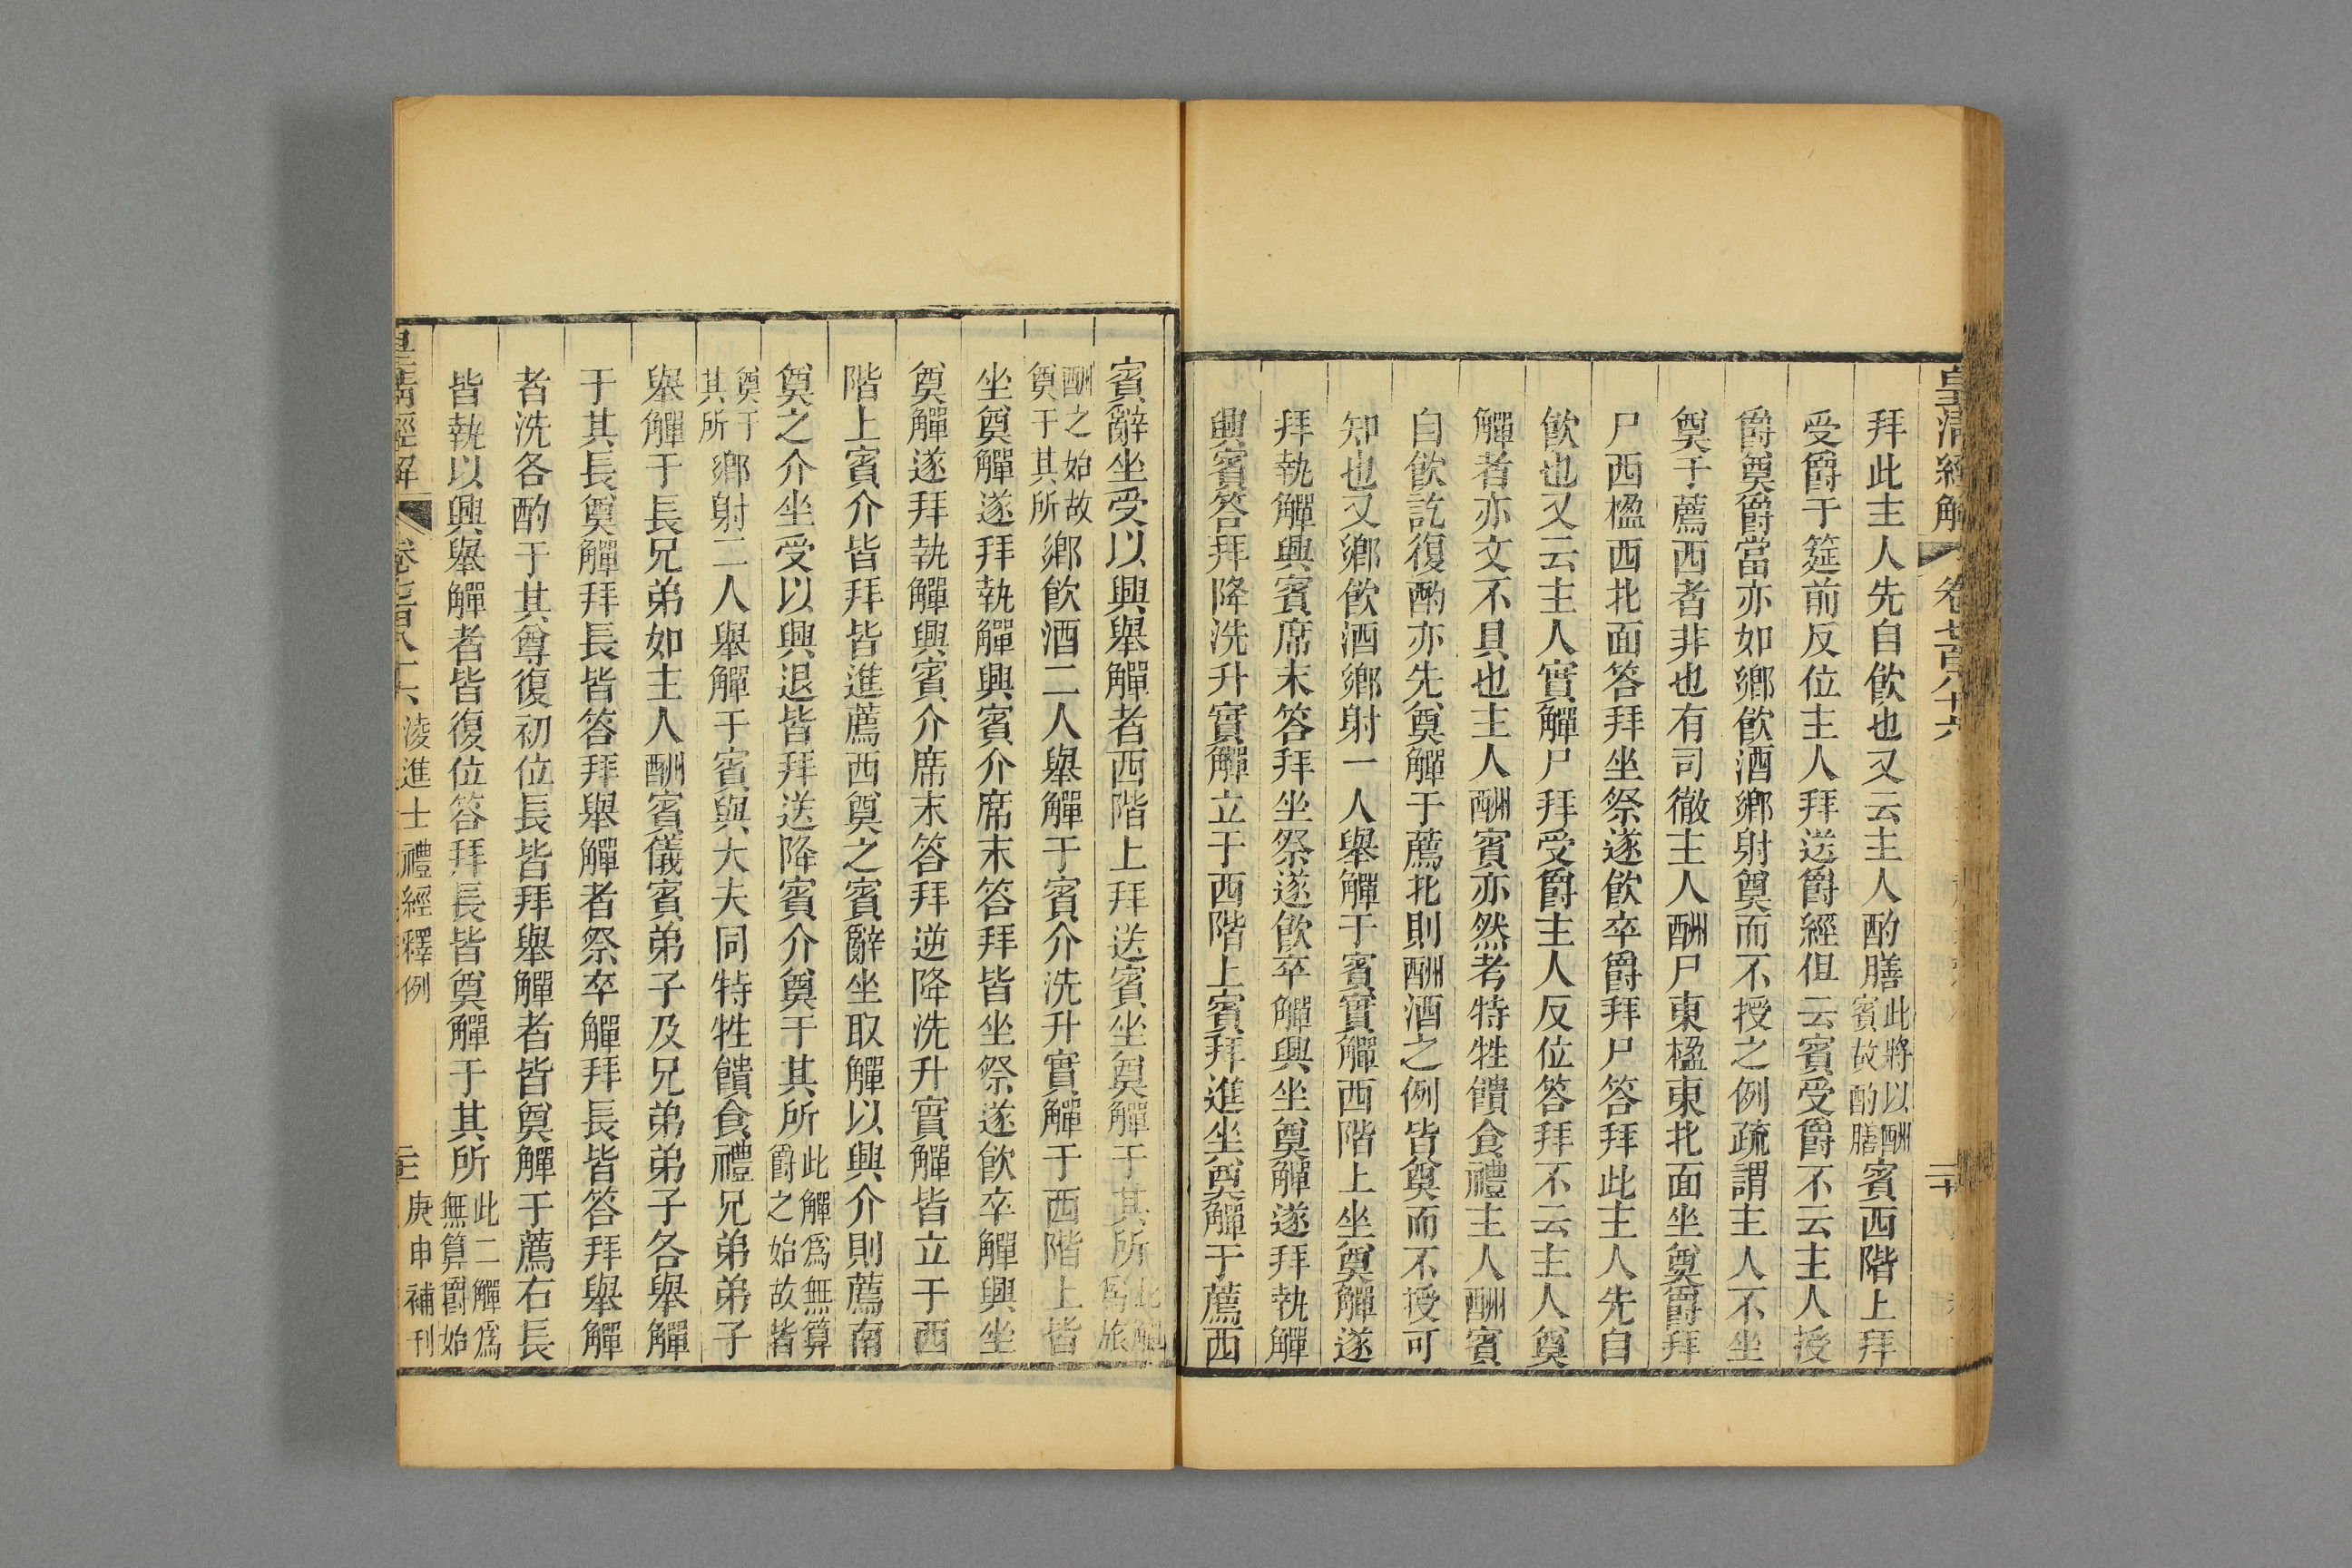 皇清經解 卷七百八十六 二十
拜此主人先自飮也又云主人酌膳此將以酬賓故酌膳賓西階上拜
受爵于筵前反位主人拜送爵經但云賓受爵不云主人授
爵奠爵當亦如鄉飮酒鄉射奠而不授之例疏謂主人不坐
奠于薦西者非也有司徹主人酬尸東楹東北面坐奠爵拜
尸西楹西北面答拜坐祭遂飮卒爵拜尸答拜此主人先自
飮也又云主人實觶尸拜受爵主人反位答拜不云主人奠
觶者亦文不具也主人酬賓亦然考特牲饋食禮主人酬賓
自飮訖復酌亦先奠觶于薦北則酬酒之例皆奠而不授可
知也又鄉飮酒鄉射一人舉觶于賓實觶西階上坐奠觶遂
拜執觶興賓席末答拜坐祭遂飮卒觶興坐奠觶遂拜執觶
興賓答拜降洗升實觶立于西階上賓拜進坐奠觶于薦西
賓辭坐受以興舉觶者西階上拜送賓坐奠觶于其所此觶爲旅
酬之始故奠于其所鄉飮酒二人舉觶于賓介洗升實觶于西階上皆
坐奠觶遂拜執觶興賓介席末答拜皆坐祭遂飮卒觶興坐
奠觶遂拜執觶興賓介席末答拜逆降洗升實觶皆立于西
階上賓介皆拜皆進薦西奠之賓辭坐取觶以興介則薦南
奠之介坐受以興退皆拜送降賓介奠于其所此觶爲無算爵之始故皆
奠于其所鄉射二人舉觶于賓與大夫同特牲饋食禮兄弟弟子
舉觶于長兄弟如主人酬賓儀賓弟子及兄弟弟子各舉觶
于其長奠觶拜長皆答拜舉觶者祭卒觶拜長皆答拜舉觶
者洗各酌于其尊復初位長皆拜舉觶者皆奠觶于薦右長
皆執以興舉觶者皆復位答拜長皆奠觶于其所此二觶爲無算爵始
皇清經解 卷七百八十六 淩進士禮經釋例 庚申補刊